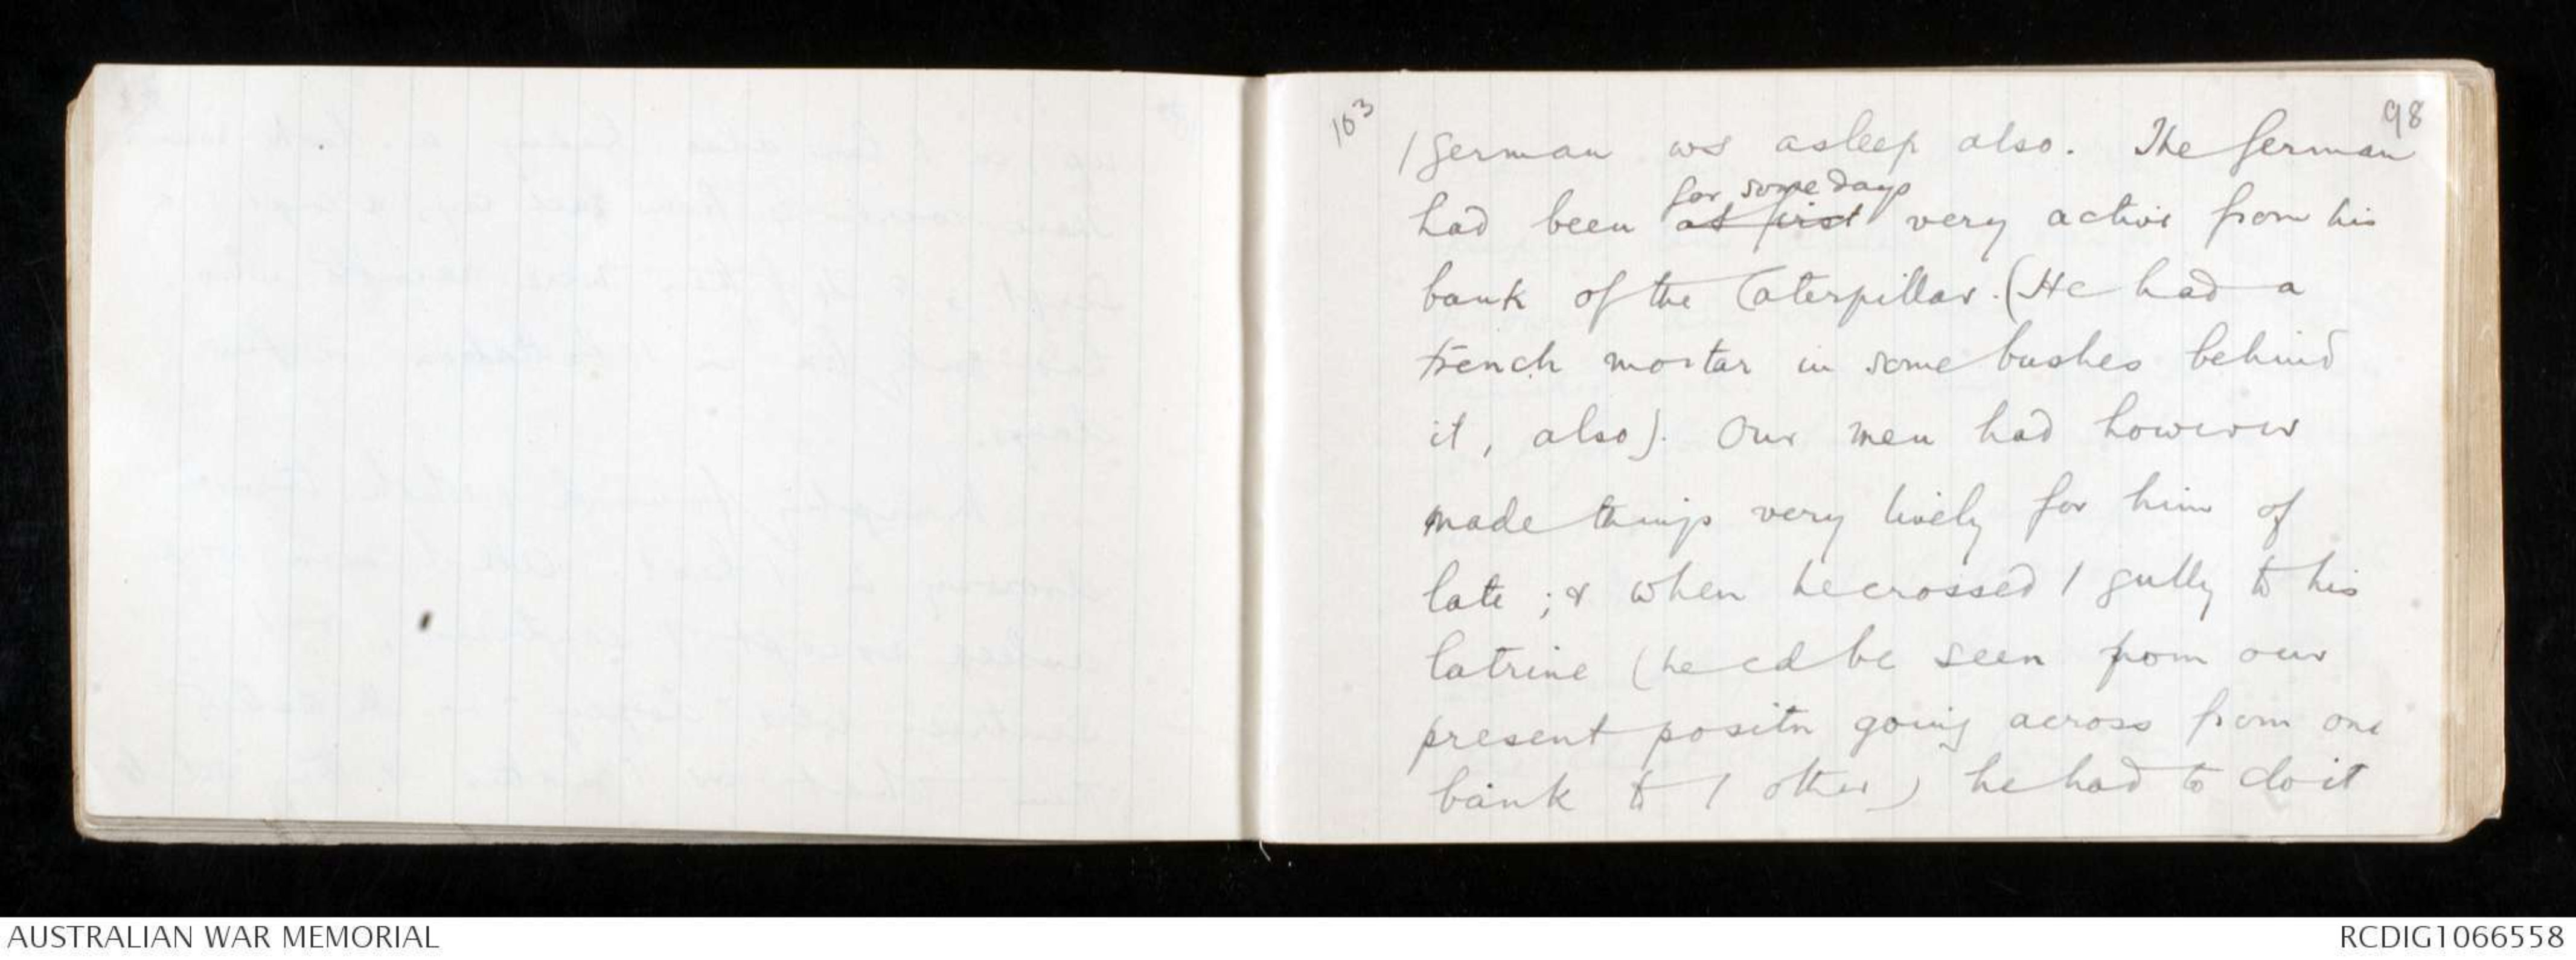 103
98
/ German ws asleep also. The German
had been at first for some days very active from his
bank of the Caterpillar. (He had a
trench mortar in some bushes behind
it, also). Our men had however
made things very lively for him of
late ; & when he crossed / gully to his
latrine (he cd be seen from our
present positn going across from one
bank to / other) he had to do it
AUSTRALIAN WAR MEMORIAL
RCDIG1066558